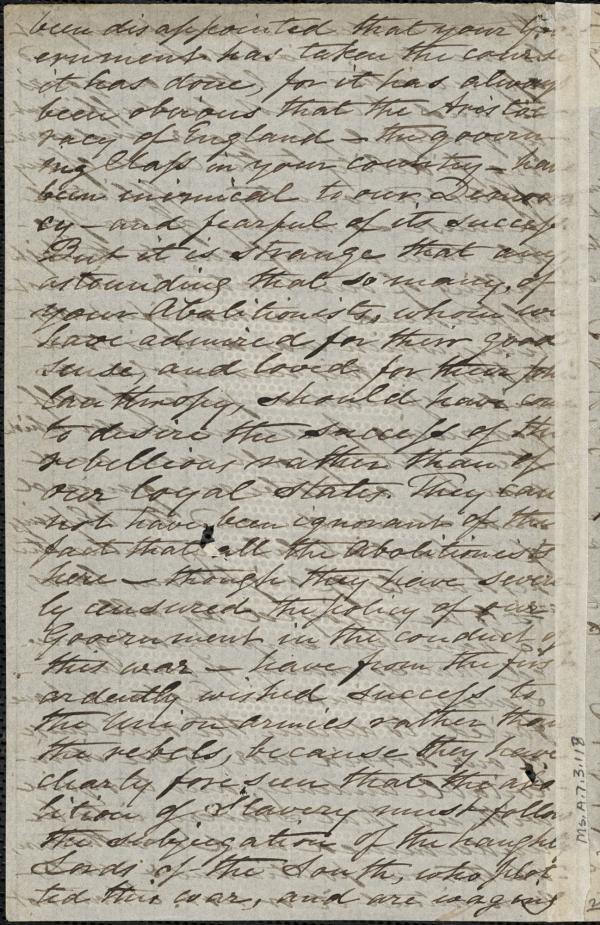 been disappointed that your Gov
ernment has taken the course
it has done, for it has always
been obvious that the Aristoc
racy of England – the govern
ing Class in your country – have
been inimical to our Democra
cy – and fearful of its success.
But it is strange that any,
astounding that so many, of
your Abolitionists, whom we
have admired for their good
sense, and loved for their phi
lanthropy, should have come
to desire the success of the
rebellious rather than of
our loyal States. They can
not have been ignorant of the
fact that all the Abolitionists
here – though they have severe
ly censured the policy of our
Government in the conduct of
this war – have from the first
ardently wished success to
the Union armies rather than
the rebels, because they have
clearly foreseen that the abo
lition of Slavery must follow
the subjugation of the haughty
Lords of the South, who plot
ted this war, and are waging
Ms. A.7.3.1 B